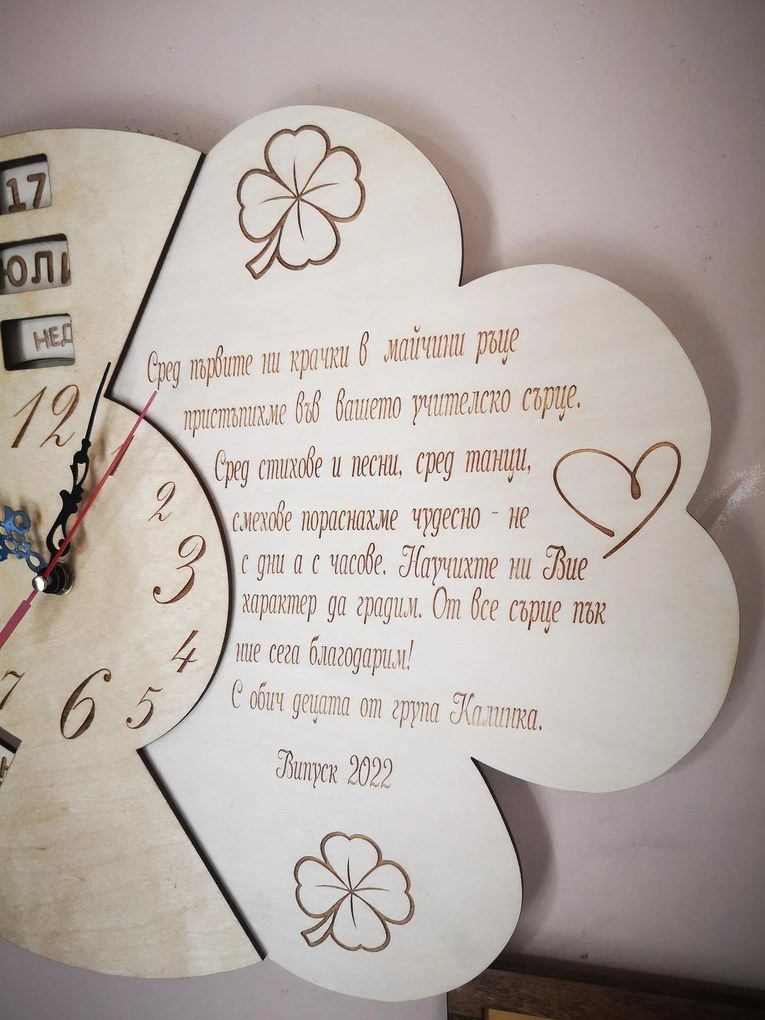 17
ЮЛИ
НЕД
12
2
3
4
5
6
7
Сред първите ни крачки в майчини ръце
пристъпихме във вашето учителско сърце.
Сред стихове и песни, сред танци,
смехове пораснахме чудесно - не
с дни а с часове. Научихте ни Вие
характер да градим. От все сърце пък
ние сега благодарим!
С обич децата от група Калинка.
Випуск 2022